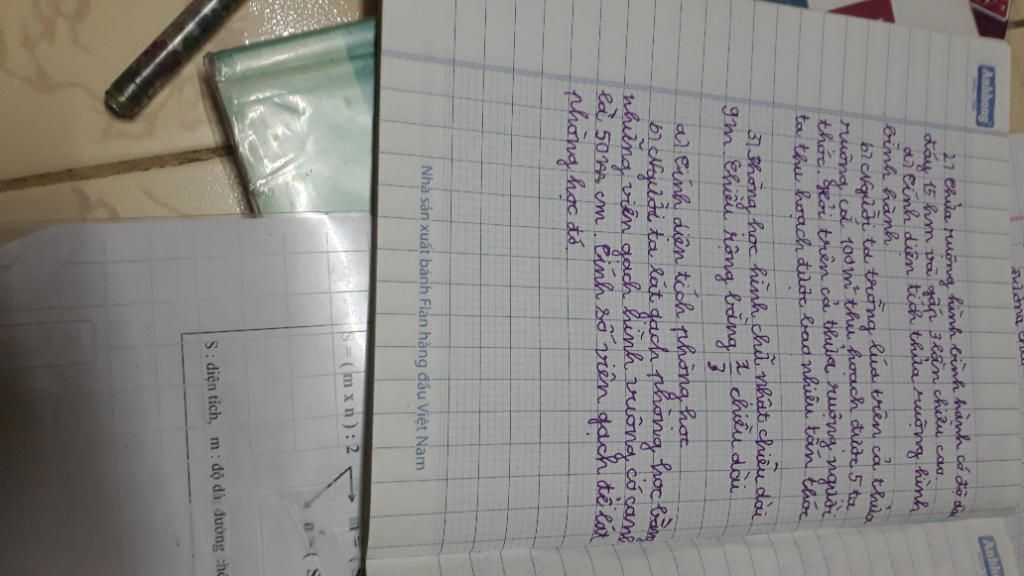 2) Thửa ruộng hình bình hành có độ dài
đáy 15 hm và gấp 3 lần chiều cao.
a) Tính diện tích thửa ruộng hình
bình hành
b) Người ta trồng lúa trên cả thửa
ruộng, cứ 100m² thu hoạch được 5 tạ
thóc. Hỏi trên cả thửa ruộng người
ta thu hoạch được bao nhiêu tấn thóc
3) Phòng học hình chữ nhật chiều dài
9m Chiều rộng bằng 2/3 chiều dài
a) Tính diện tích phòng học
b) Người ta lát gạch phòng học bằng
những viên gạch hình vuông có cạnh
là 50 cm. Tính số viên gạch để lát
phòng học đó
Nhà sản xuất bánh Flan hàng đầu Việt Nam
S = ( m x n ) : 2
S : diện tích, m : độ dà đường